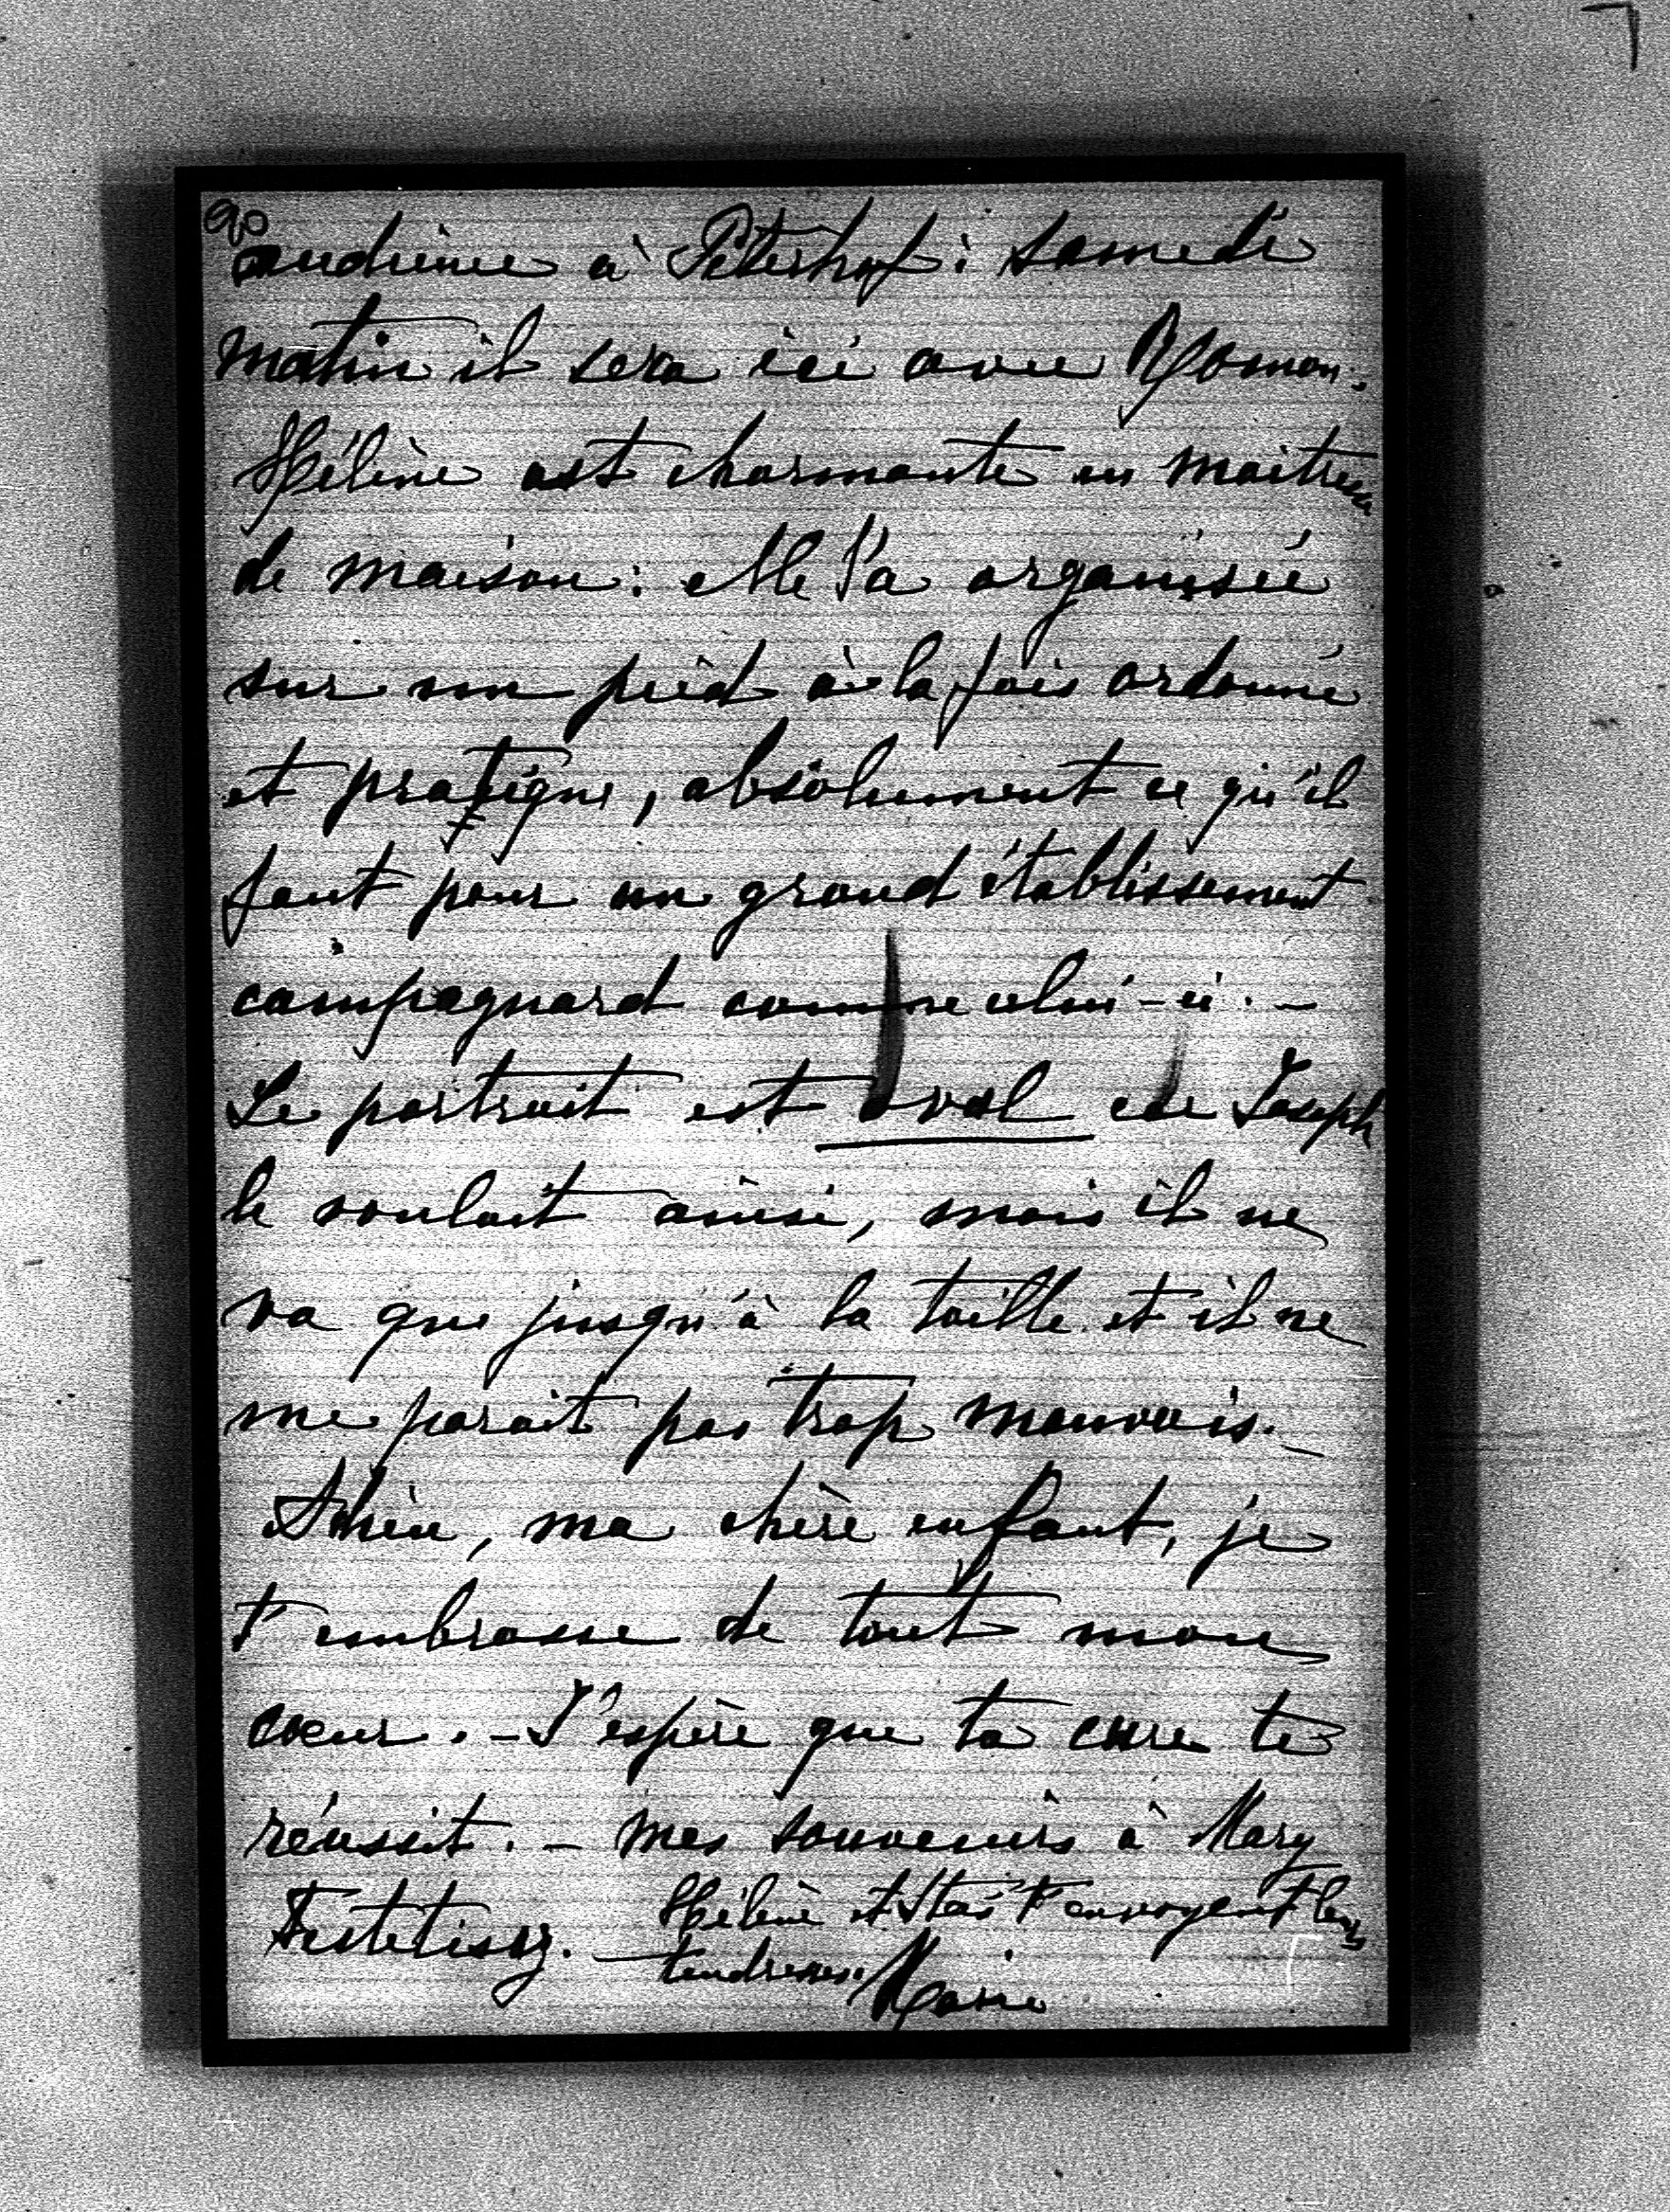 90
audience à Péterhof: samedi
matin il sera ici avec Roman.
Hélène est charmante en maitresse
de maison: elle l'a organisée
sur un pied à la fois ordonné
et pratique, absolument ce qu'il
faut pour un grand établissement
campagnard comme celui-ci. -
Le portrait est oval car Joseph
le voulait ainsi, mais il ne
va que jusqu'à la taille et il ne
me parait pas trop mauvais. -
Adieu, ma chère enfant, je
t'embrasse de tout mon
coeur. - J'espère que ta cure te
réussit. - Mes souvenirs à Mary
Festetisz. - Hélène et Stas t'envoyent leurs
tendresses. Marie